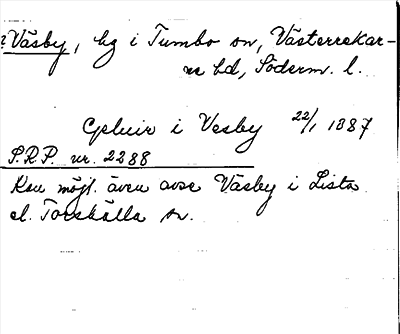 ? Väsby, by i Tumbo sn, Västerrekar-
ne hd, Söderm. l.
i Vesby 22/1 1887
S.R.P. nr. 2288
Kan möjl. även avse Väsby i Lista
el. Torshälla sn.